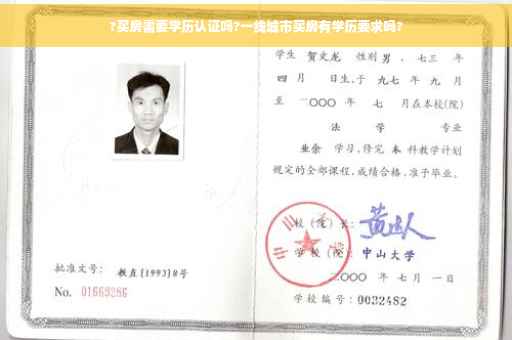 ?买房需要学历认证吗?一线城市买房有学历要求吗?
学生 贺文龙 性别 男 、 七三 年
四 月 日生,于 九七 年 九 月
至 二〇〇〇 年 七 月在本校(院)
法 学 专业
业余 学习,修完 本 科教学计划
规定的全部课程,成绩合格,准予毕业。
校(院)长:
学校(院) 中山大学
二〇〇〇 年 七 月 一 日
批准文号: 教直[1993]8号
No. 01669286
学校编号:0032482